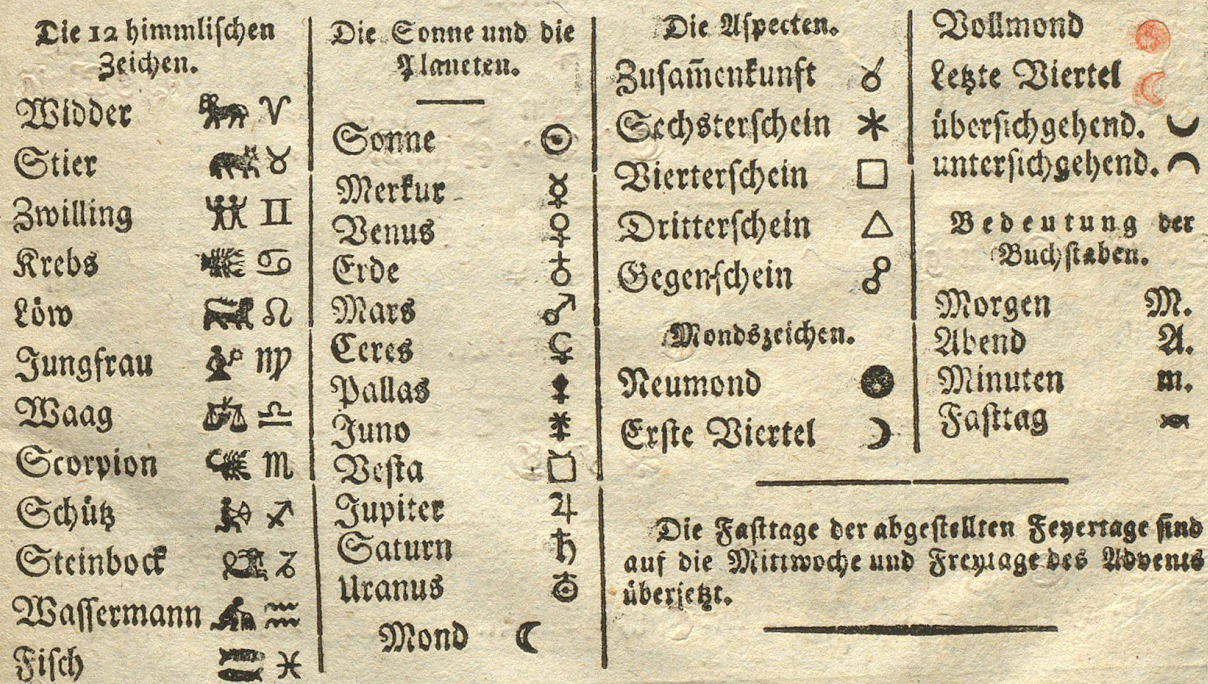 Die 12 himmlischen
Zeichen.
Widder ♈
Stier ♉
Zwilling ♊
Krebs ♋
Löw ♌
Jungfrau ♍
Waag ♎
Scorpion ♏
Schütz ♐
Steinbock ♑
Wassermann ♒
Fisch ♓
Die Sonne und die
Planeten.
Sonne ☉
Merkur ☿
Venus ♀
Erde ♁
Mars ♂
Ceres ⚳
Pallas ⚴
Juno ⚵
Vesta ⚶
Jupiter ♃
Saturn ♄
Uranus ⛢
Mond ☾
Die Aspecten.
Zusam̄enkunft ☌
Sechsterschein ⚹
Vierterschein □
Dritterschein △
Gegenschein ☍
Mondszeichen.
Neumond ●
Erste Viertel ☽
Vollmond
Letzte Viertel ☾
übersichgehend.
untersichgehend.
Bedeutung der
Buchstaben.
Morgen M.
Abend A.
Minuten m.
Fasttag
Die Fasttage der abgestellten Feyertage sind
auf die Mittwoche und Freytage des Advents
übersetzt.